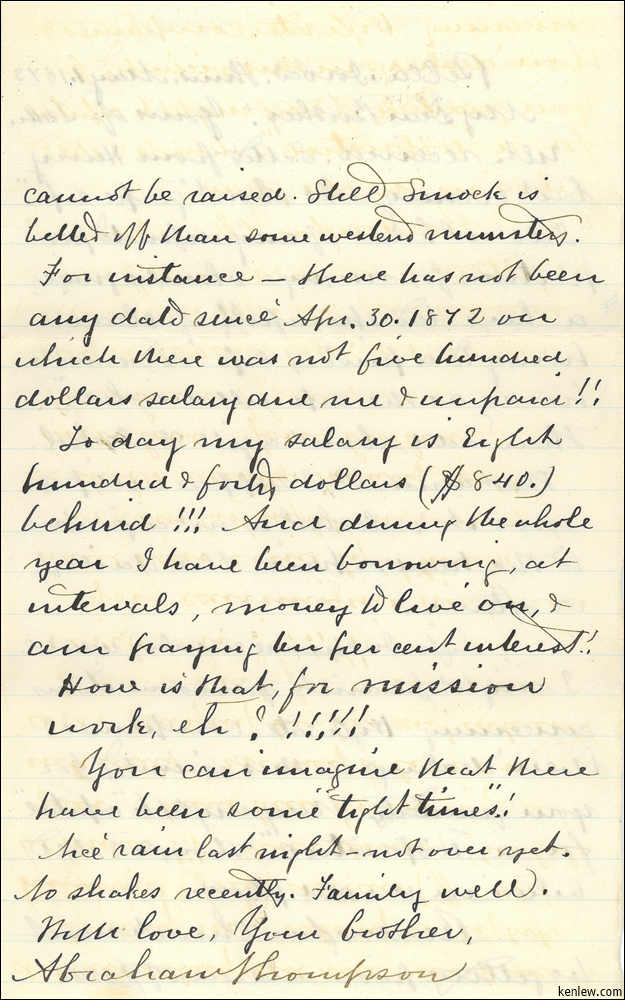 cannot be raised. Still Smock is
better off than some western ministers.
For instance — there has not been
any date since Apr. 30. 1872 on
which there was not five hundred
dollars salary due me & unpaid!!
To day my salary is Eight
hundred & forty dollars ($840.)
behind!!! And during the whole
year I have been borrowing, at
intervals, money to live on, &
am paying ten per cent interest!!
How is that, for mission
work, eh? !!!!!!
You can imagine that there
have been some "tight times"!
Nice rain last night – not over yet.
No shakes recently. Family well.
With love, Your brother,
Abraham Thompson
kenlew.com